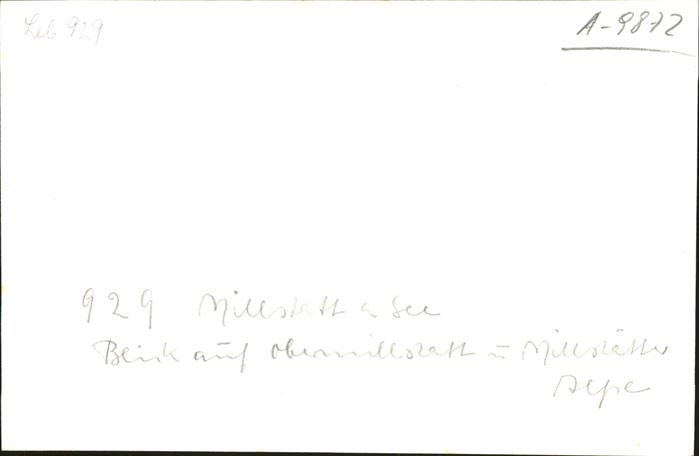 Leb 929
A-9872
929 Millstatt a See
Blick auf Obermillstatt u Millstätter
Alpe